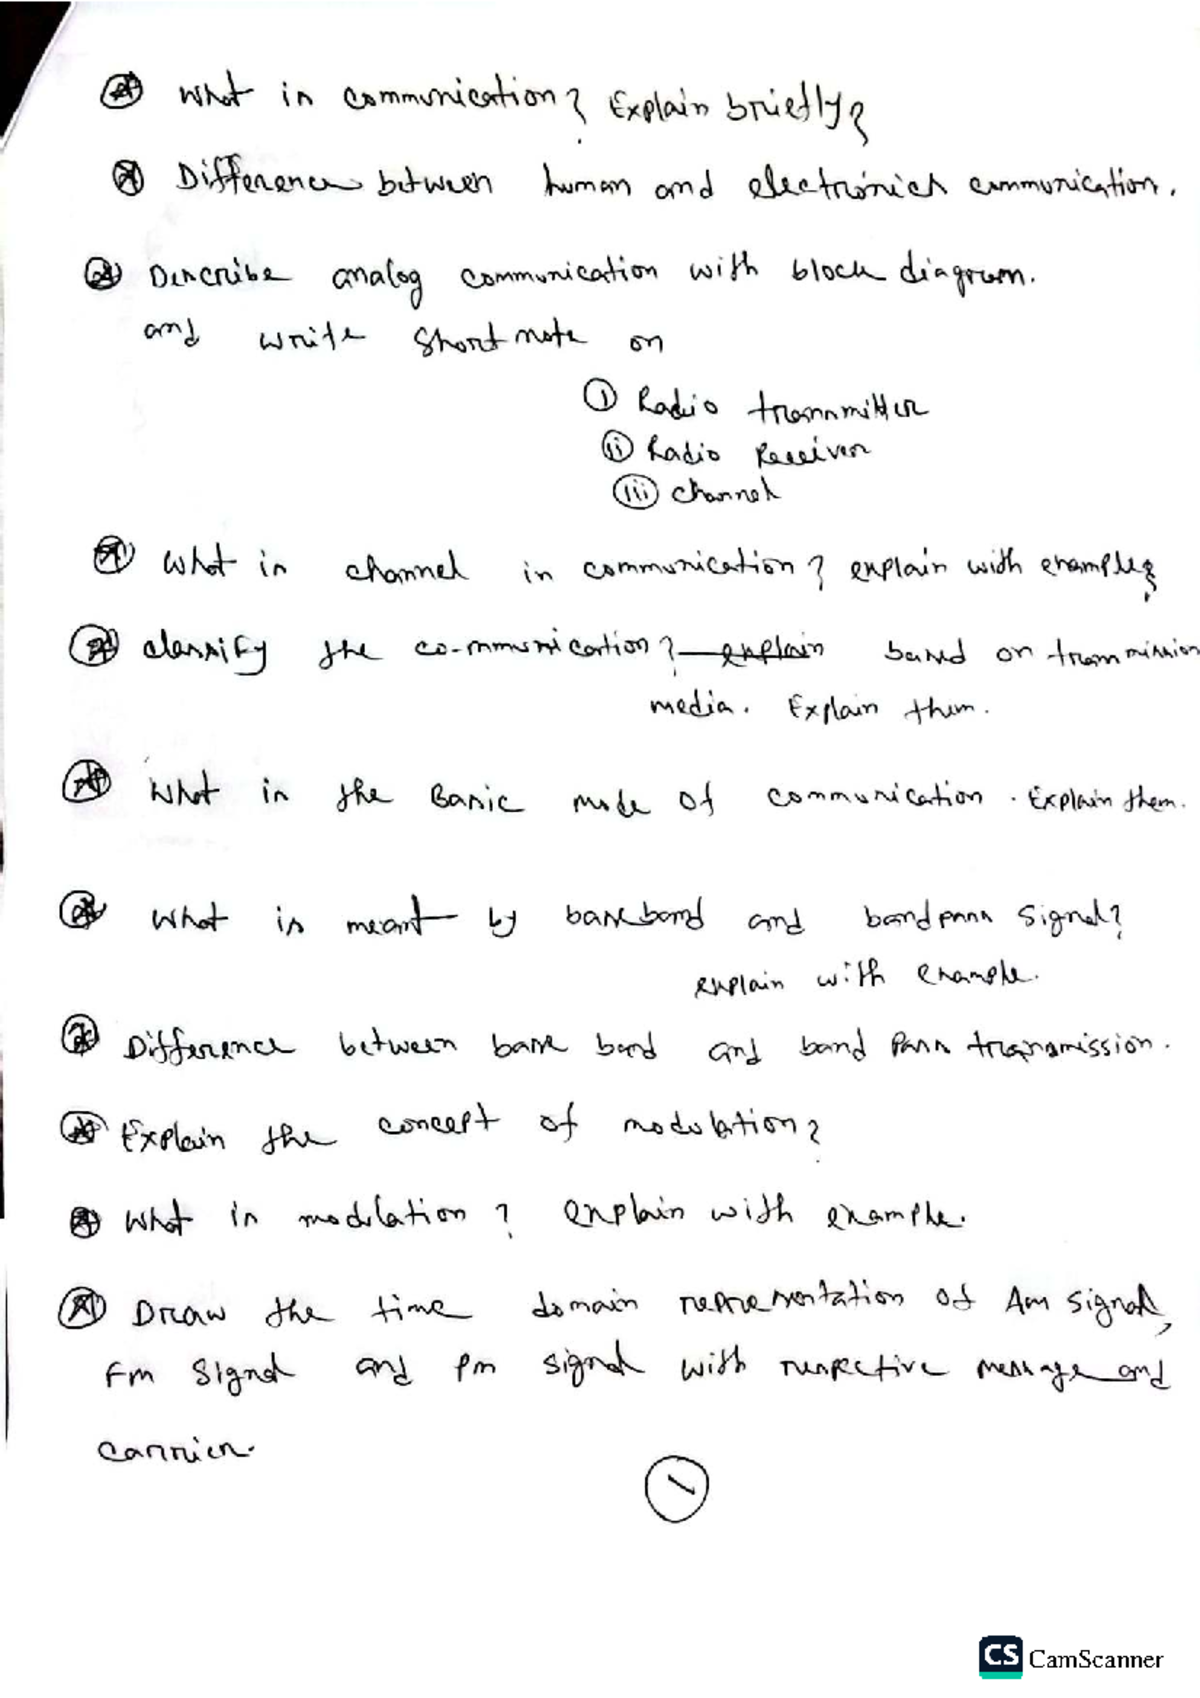 What is communication? Explain briefly?
Difference between human and electronics communication.
Describe analog communication with block diagram.
and write short note on
(i) Radio transmitter
(ii) Radio Receiver
(iii) channel
What is channel in communication? explain with example?
classify the co-mmunication? explain based on transmission
media. Explain them.
What is the Basic mode of communication. Explain them.
What is meant by baseband and bandpass signal?
explain with example.
Difference between base band and band Pass transmission.
Explain the concept of modulation?
What is modulation? explain with example.
Draw the time domain representation of Am signal,
Fm signal and Pm signal with respective message and
carrier.
1
CS CamScanner